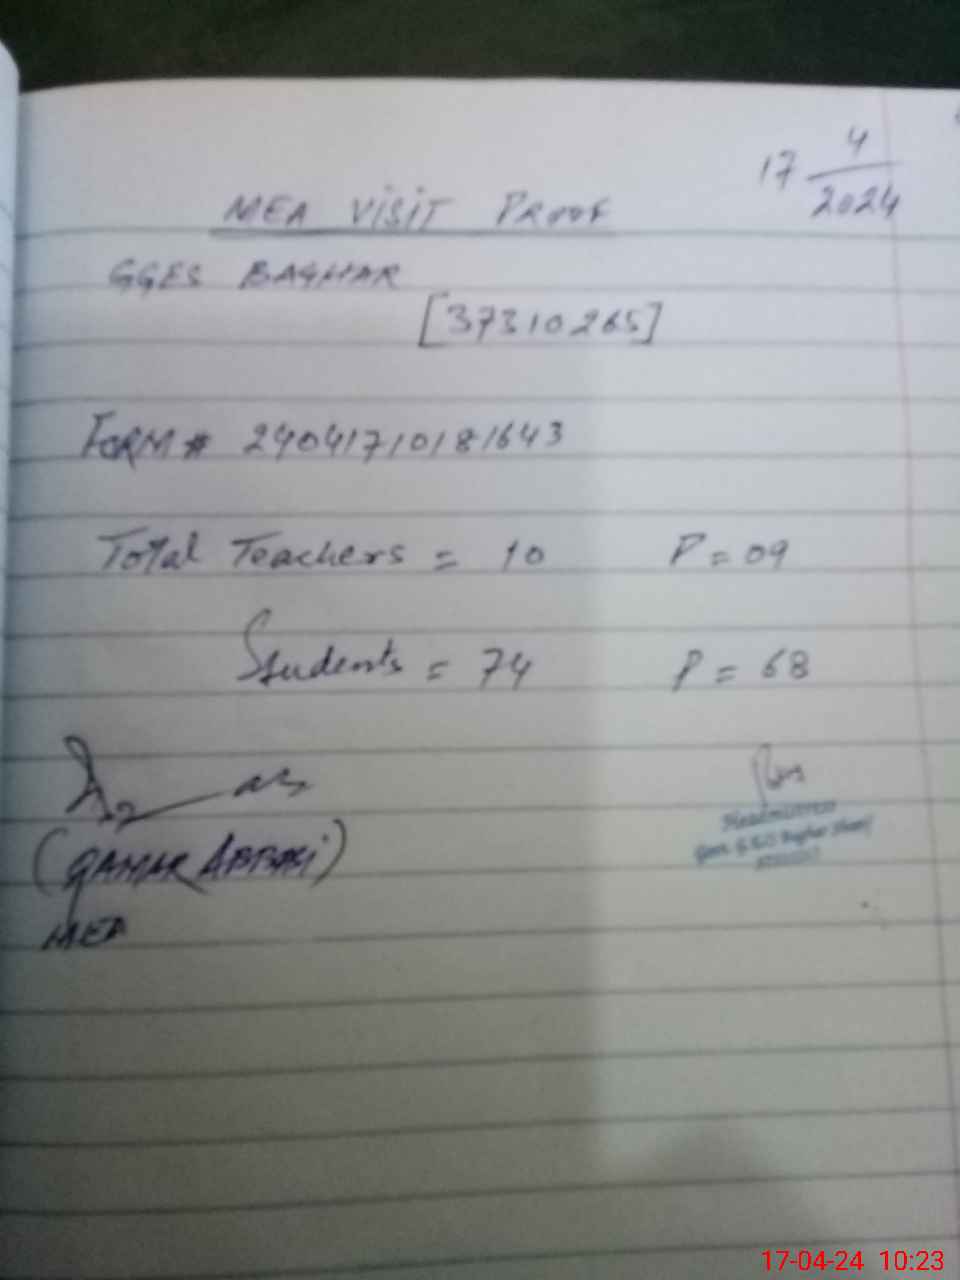 17 4/2024
MEA VISIT PROOF
GGES BAGHAR
[37310265]
FORM# 24041710181643
Total Teachers = 10 P = 09
Students = 74 P = 68
(QAMAR ABBASI)
MEA
Headmistress
17-04-24 10:23